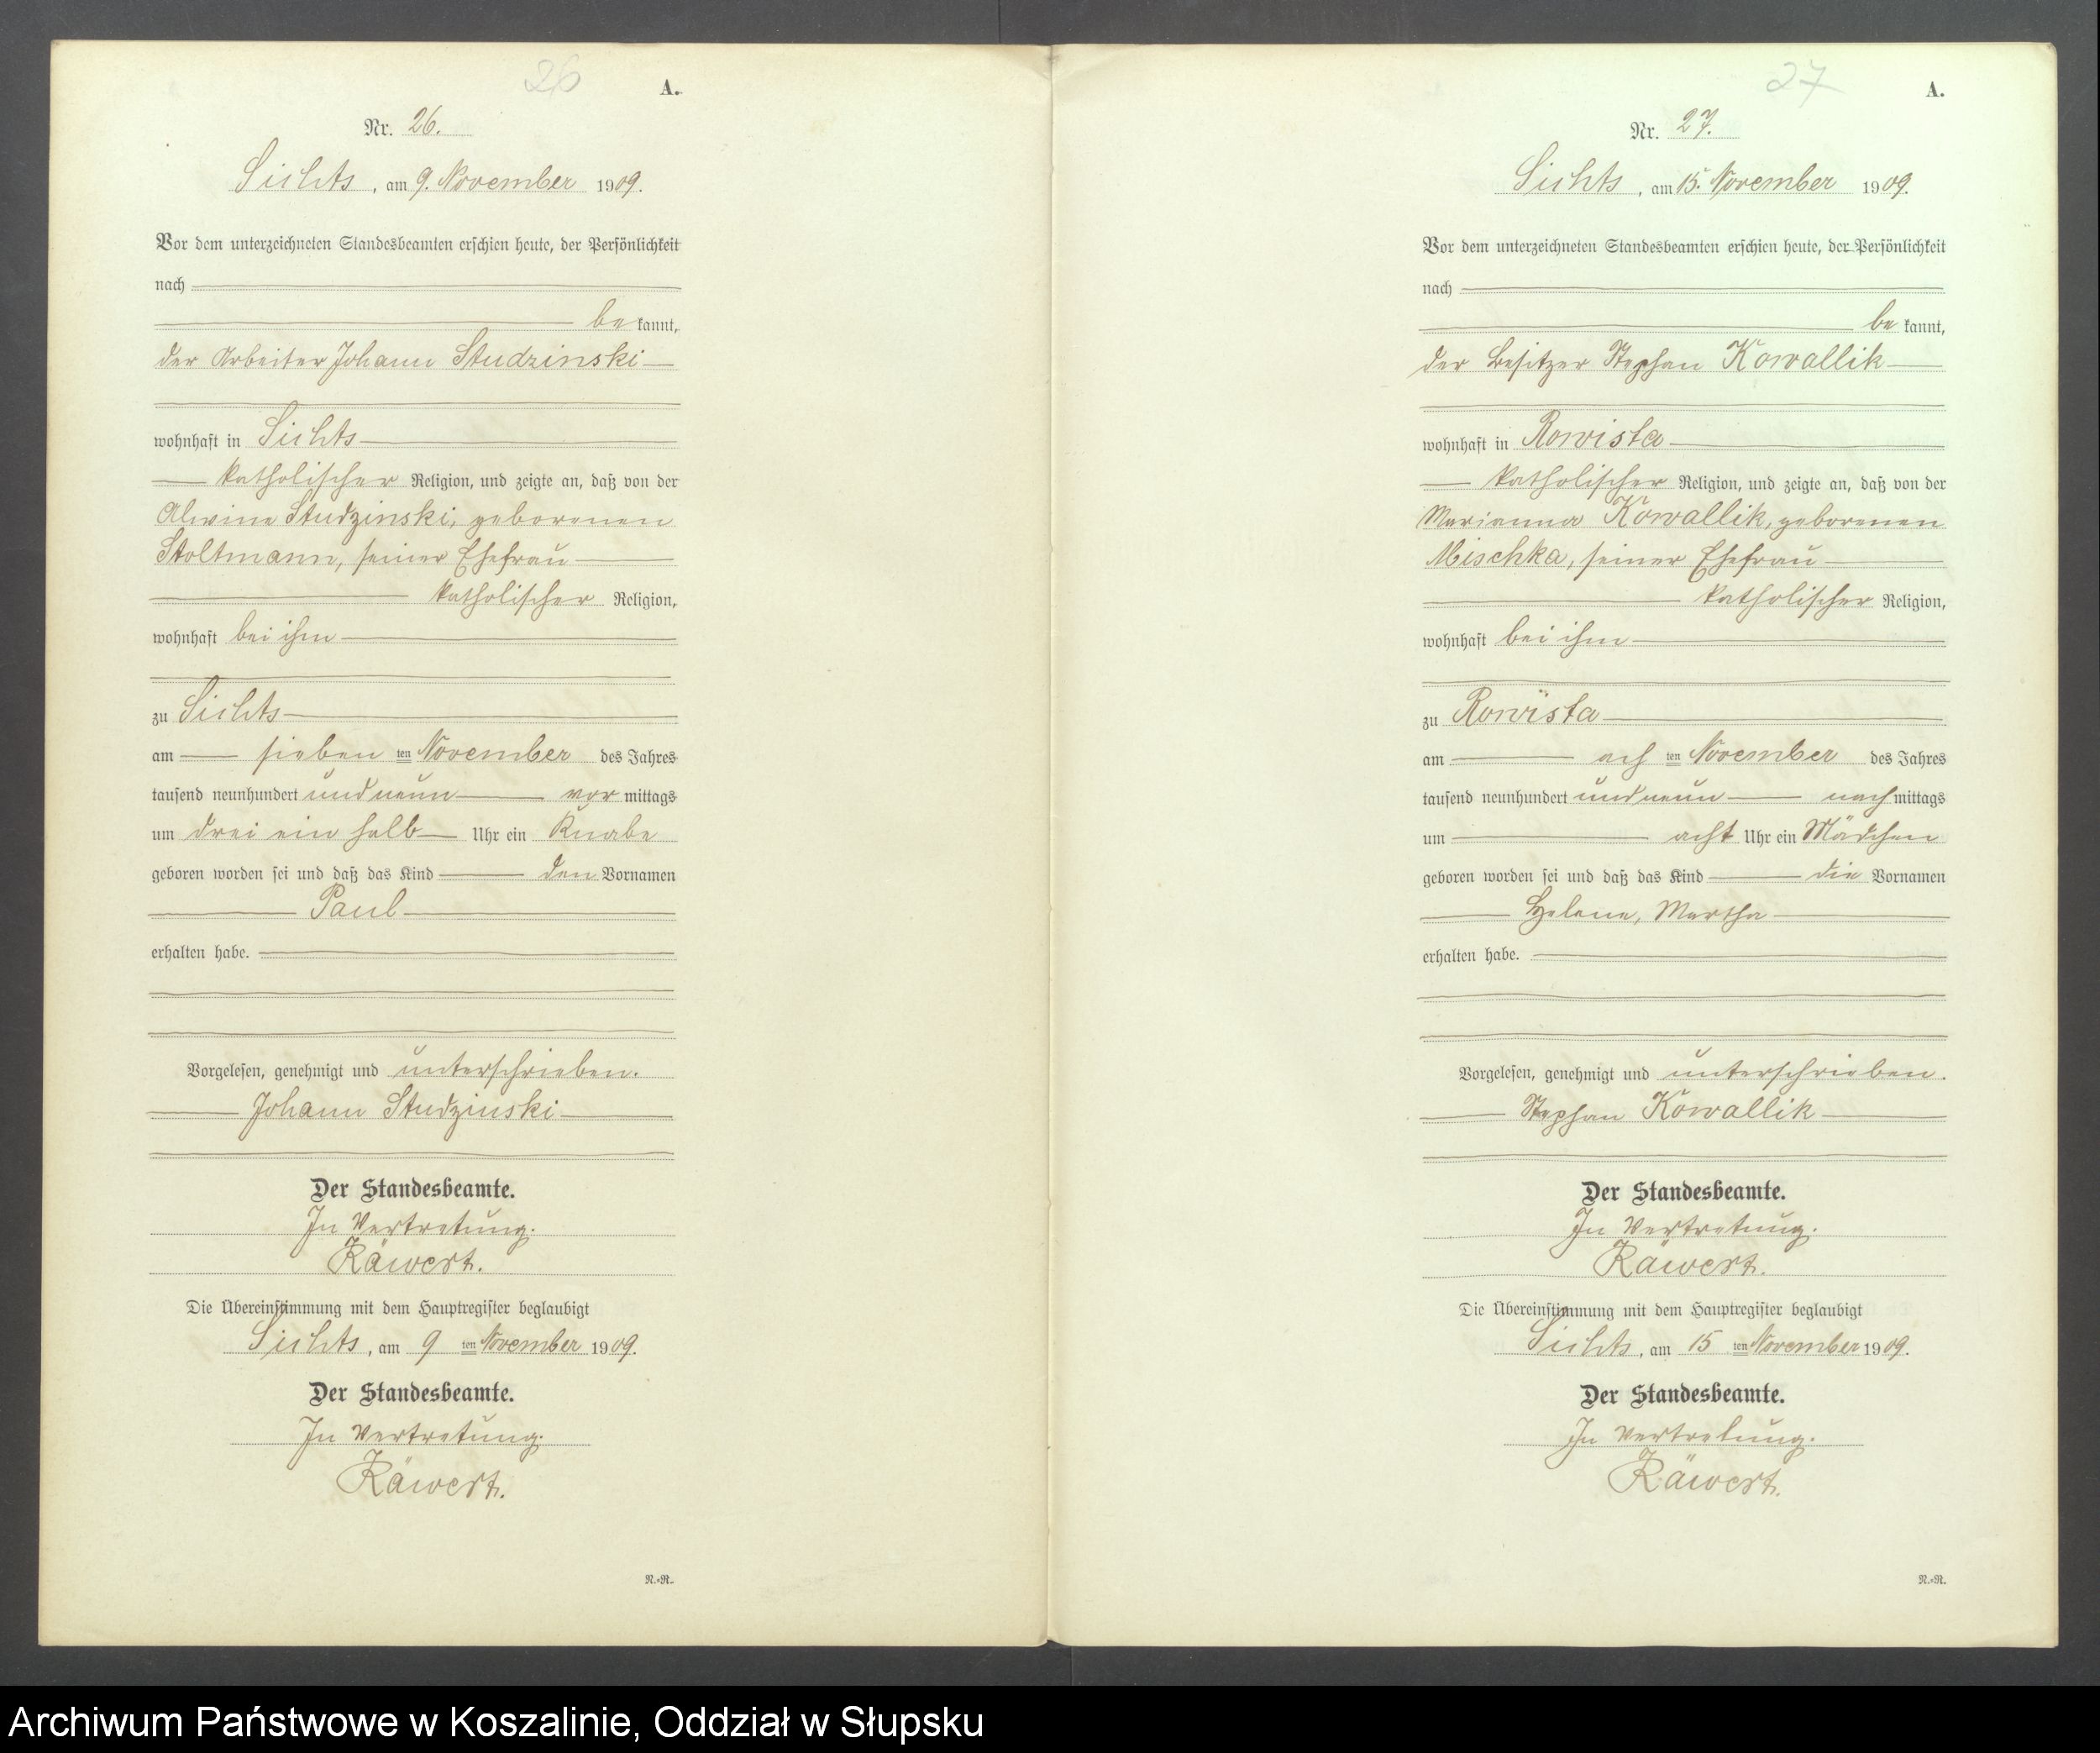 26
A.
Nr. 26.
Sichts, am 9. November 1909.
Vor dem unterzeichneten Standesbeamten erschien heute, der Persönlichkeit
nach
be kannt,
der Arbeiter Johann Studzinski
wohnhaft in Sichts
katholischer Religion, und zeigte an, daß von der
Alwine Studzinski, geborenen
Stoltmann, seiner Ehefrau
katholischer Religion,
wohnhaft bei ihm
zu Sichts
am sieben ten November des Jahres
tausend neunhundert und neun vor mittags
um drei ein halb Uhr ein Knabe
geboren worden sei und daß das Kind den Vornamen
Paul
erhalten habe.
Vorgelesen, genehmigt und unterschrieben.
Johann Studzinski
Der Standesbeamte.
In Vertretung.
Räwert.
Die Übereinstimmung mit dem Hauptregister beglaubigt
Sichts, am 9 ten November 1909.
Der Standesbeamte.
In Vertretung.
Räwert.
N.=R.
27
A.
Nr. 27.
Sichts, am 15. November 1909.
Vor dem unterzeichneten Standesbeamten erschien heute, der Persönlichkeit
nach
be kannt,
der Besitzer Stephan Kowallik
wohnhaft in Rowista
katholischer Religion, und zeigte an, daß von der
Marianna Kowallik, geborenen
Mischka, seiner Ehefrau
katholischer Religion,
wohnhaft bei ihm
zu Rowista
am ach ten November des Jahres
tausend neunhundert und neun nach mittags
um acht Uhr ein Mädchen
geboren worden sei und daß das Kind die Vornamen
Helene, Martha
erhalten habe.
Vorgelesen, genehmigt und unterschrieben.
Stephan Kowallik
Der Standesbeamte.
In Vertretung.
Räwert.
Die Übereinstimmung mit dem Hauptregister beglaubigt
Sichts, am 15 ten November 1909.
Der Standesbeamte.
In Vertretung.
Räwert.
N.=R.
Archiwum Państwowe w Koszalinie, Oddział w Słupsku